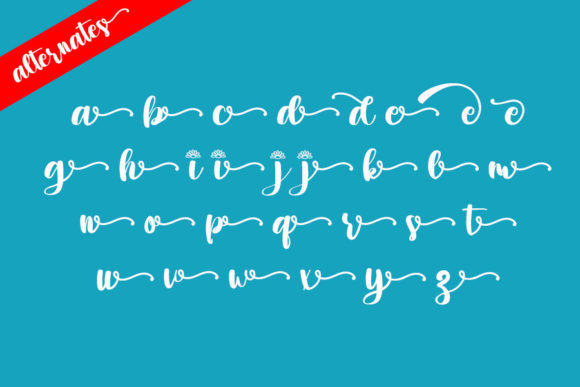 alternates
a b c d d e e e
g h i i j j k l m
n o p q r s t
u v w x y z